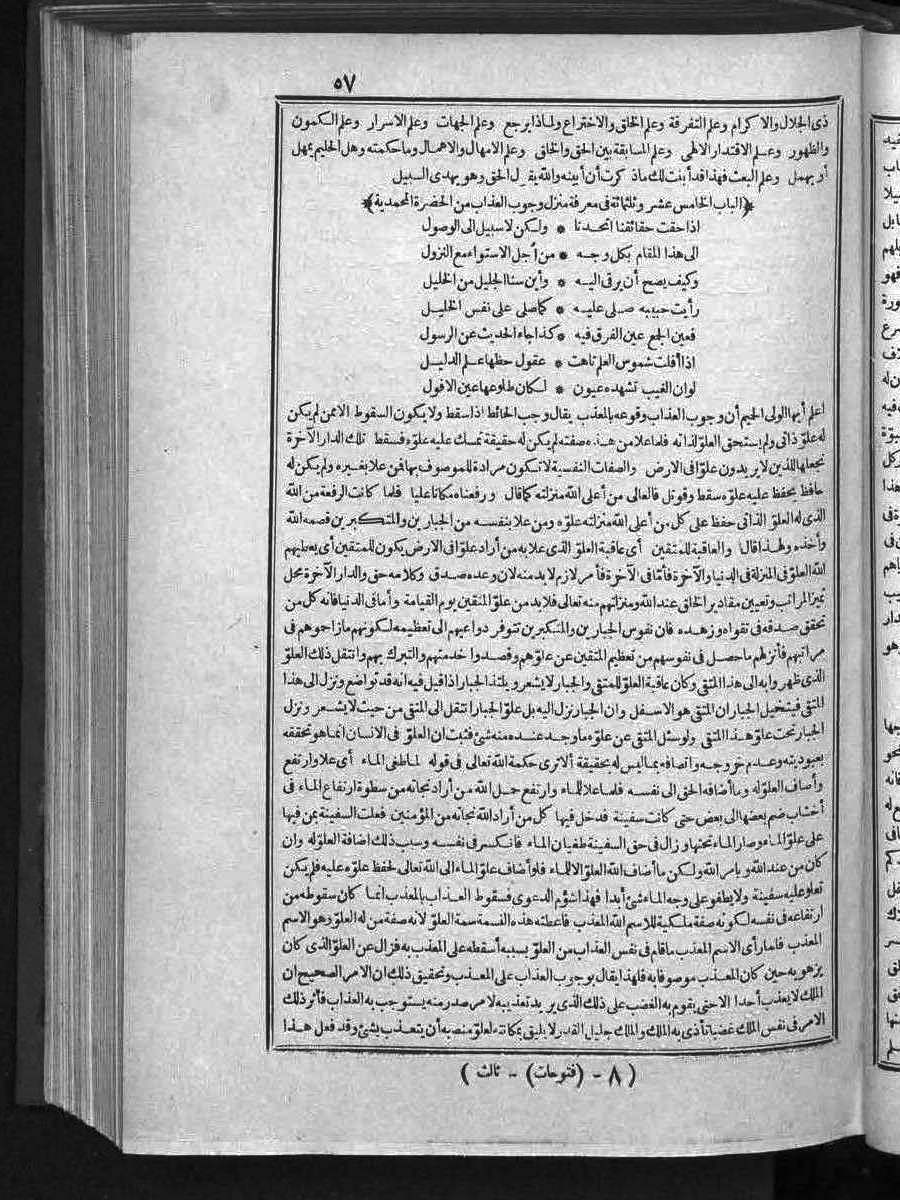 ٥٧
ذى الجلال والاكرام وعلم التفرقة وعلم الخلق والاختراع ولماذا يرجع وعلم الجهات وعلم الاسرار وعلم الكمون
والظهور وعلم الاقتدار الالهى وعلم المسابقة بين الحق والخلق وعلم الامهال والاهمال وما حكمته وهل الحليم يمهل
أو يهمل وعلم البعث فهذا قد أبنت لك ماذ كرت أن أبينه والله يقول الحق وهو يهدى السبيل
﴿الباب الخامس عشر وثلثمائة فى معرفة منزل وجوب العذاب من الحضرة المحمدية﴾
اذا حقت حقائقنا اتحدنا * ولكن لا سبيل الى الوصول
الى هذا المقام بكل وجه * من أجل الاستواء مع النزول
وكيف يصح أن يرقى اليه * وأين سنا الجليل من الخليل
رأيت حبيبه صلى عليه * كما صلى على نفس الخليل
فعين الجمع عين الفرق فيه * كذا جاء الحديث عن الرسول
اذا أفلت شموس العلم تاهت * عقول حظها علم الدليل
لو ان الغيب تشهده عيون * لكان طلوعها عين الافول
اعلم أيها الولى الحميم أن وجوب العذاب وقوعه بالمعذب يقال وجب الحائط اذا سقط ولا يكون السقوط الا ممن لم يكن
له علوّ ذاتى ولم يستحق العلو لذاته فلما علا من هذه صفته لم يكن له حقيقة تمسك عليه علوّه فسقط تلك الدار الآخرة
نجعلها للذين لا يريدون علوّا فى الارض والصفات النفسية لا تكون مرادة للموصوف بها فمن علا بغيره ولم يكن له
حافظ يحفظ عليه علوّه سقط وقوتل فالعالى من أعلى الله منزلته كما قال ورفعناه مكانا عليا فلما كانت الرفعة من الله
الذى له العلوّ الذاتى حفظ على كل من أعلى الله منزلته علوّه ومن علا بنفسه من الجبارين والمتكبرين قصمه الله
وأخذه ولهذا قال والعاقبة للمتقين أى عاقبة العلوّ الذى علا به من أراد علوّا فى الارض يكون للمتقين أى يعطيهم
الله العلوّ فى المنزلة فى الدنيا والآخرة فأمّا فى الآخرة فأمر لازم لا بد منه لان وعده صدق وكلامه حق والدار الآخرة محل
تميز المراتب وتعيين مقادير الخلق عند الله ومنزلتهم منه تعالى فلا بد من علوّ المتقين يوم القيامة وأما فى الدنيا فانه كل من
تحقق صدقه فى تقواه وزهده فان نفوس الجبارين والمتكبرين تتوفر دواعيهم الى تعظيمه لكونهم ما زاحموهم فى
مراتبهم فأنزلهم ما حصل فى نفوسهم من تعظيم المتقين عن علوّهم وقصدوا خدمتهم والتبرك بهم وانتقل ذلك العلوّ
الذى ظهروا به الى هذا المتقى وكان عاقبة العلوّ للمتقى والجبار لا يشعر ويلتذ الجبار اذا قيل فيه انه قد تواضع ونزل الى هذا
المتقى فيتخيل الجبار ان المتقى هو الاسفل وان الجبار نزل اليه بل علوّ الجبار انتقل الى المتقى من حيث لا يشعر ونزل
الجبار تحت علوّ هذا المتقى ولو سئل المتقى عن علوّه ما وجد عنده منه شئ فثبت ان العلوّ فى الانسان انما هو تحققه
بعبوديته وعدم خروجه واتصافه بما ليس له بحقيقة ألا ترى حكمة الله تعالى فى قوله لما طغى الماء أى علا وارتفع
وأضاف العلوّ له وما أضافه الحق الى نفسه فلما علا الماء وارتفع حمل الله من أراد نجاته من سطوة ارتفاع الماء فى
أخشاب ضم بعضها الى بعض حتى كانت سفينة فدخل فيها كل من أراد الله نجاته من المؤمنين فعلت السفينة بمن فيها
على علوّ الماء وصار الماء تحتها وزال فى حق السفينة طغيان الماء فانكسر فى نفسه وسبب ذلك اضافة العلوّ له وان
كان من عند الله وبامر الله ولكن ما أضاف الله العلوّ الا للماء فلو أضاف علوّ الماء الى الله تعالى لحفظ علوّه عليه فلم يكن
تعلو عليه سفينة ولا يطفو على وجه الماء شئ أبدا فهذا شؤم الدعوى فسقوط العذاب بالمعذب انما كان سقوطه من
ارتفاعه فى نفسه لكونه صفة ملكية للاسم الله المعذب فاعطته هذه النسمة سمة العلوّ لانه صفة من له العلوّ وهو الاسم
المعذب فلما رأى الاسم المعذب ما قام فى نفس العذاب من العلوّ بسببه أسقطه على المعذب به فزال عن العلوّ الذى كان
يزهو به حين كان المعذب موصوفا به فلهذا يقال بوجوب العذاب على المعذب وتحقيق ذلك ان الامر الصحيح ان
الملك لا يعذب أحدا الا حتى يقوم به الغضب على ذلك الذى يريد تعذيبه لامر صدر منه يستوجب به العذاب فأثر ذلك
الامر فى نفس الملك غضبا تأذى به الملك والملك جليل القدر لا يليق بمكانته لعلوّ منصبه أن يتعذب بشئ وقد فعل هذا
( ٨ - (فتوحات) - ثالث )